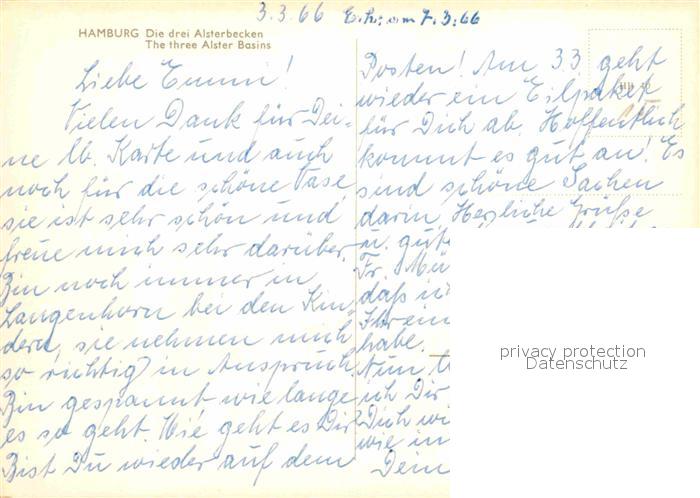 3.3.66 Erh: am 7.3.66
HAMBURG Die drei Alsterbecken
The three Alster Basins
Liebe Emmi!
Vielen Dank für Dei-
ne lb. Karte und auch
noch für die schöne Vase,
sie ist sehr schön und
freue mich sehr darüber.
Bin noch immer in
Langenhorn bei den Kin-
dern, sie nehmen mich
so richtig in Anspruch.
Bin gespannt wie lange
es so geht. Wie geht es Dir
Bist Du wieder auf dem
Posten! Am 3.3 geht
wieder ein Eilpaket
für Dich ab. Hoffentlich
kommt es gut an! Es
sind schöne Sachen
darin. Herzliche Grüße
u. gut
Fr. Mü
daß ic
Ihr ein
habe.
Nun
ich Dir
Dich wi
wie in
Dein
privacy protection
Datenschutz